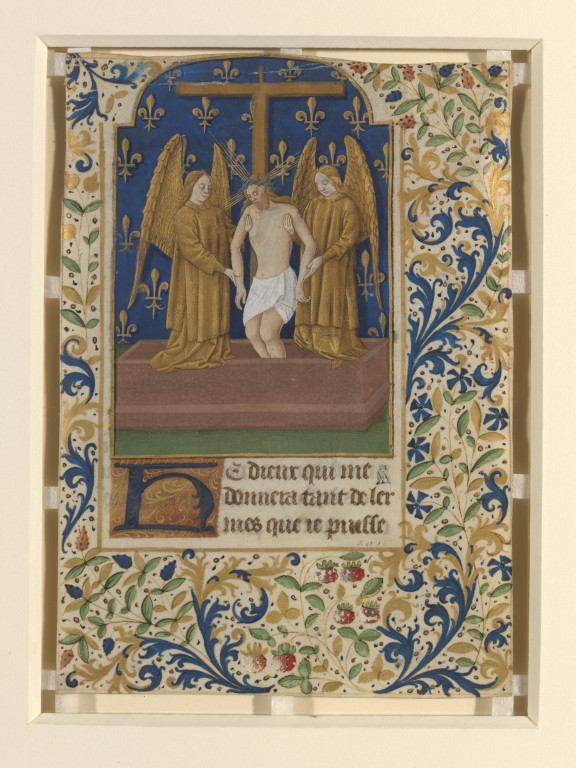 He dieux qui me
donnera tant de ler
mes que ie puisse